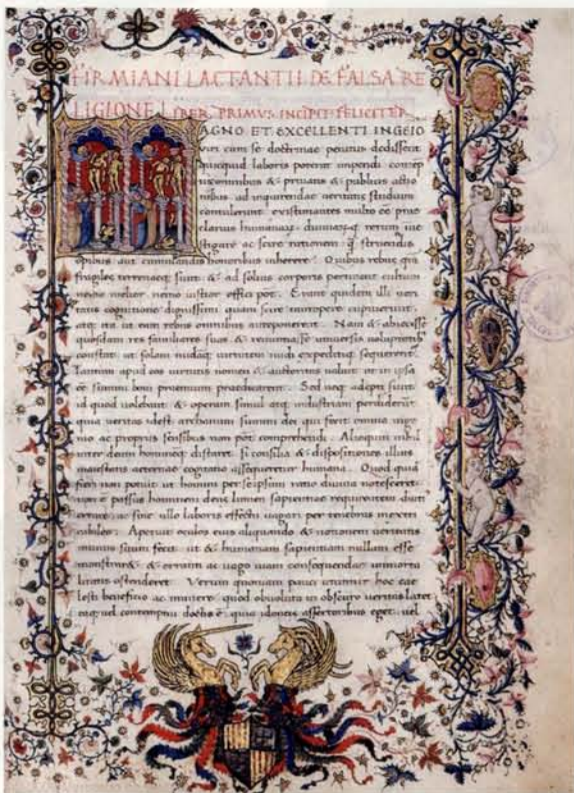 FIRMIANI LACTANTII DE FALSA RE
LIGIONE LIBER PRIMVS INCIPIT FELICITER
AGNO ET EXCELLENTI INGEIO
uiri cum se doctrinae penitus dedissent
quicquid laboris poterat impendi contep
tis omnibus & priuatis & publicis actio
nibus ad inquirendae ueritatis studium
contulerunt existimantes multo ee prae
clarius humanarum diuinarumq; rerum inue
stigare ac scire rationem q̄ struendis
opibus aut cumulandis honoribus inherere. Quibus rebus qm̄
fragiles terrenaeq; sunt & ad solius corporis pertinent cultum
nemo melior nemo iustior effici pot. Erant quidem illi ueri
tatis cognitione dignissimi quam scire tantopere cupiuerunt
atq; ita ut eam rebus omnibus anteponerent. Nam & abiecisse
quosdam res familiares suas & renuntiasse uniuersis uoluptatib;
constat ut solam nudaq; uirtutem nudi expeditiq; sequerent
Tantum apud eos uirtutis nomen & auctoritas ualuit ut in ipsa
ee summi boni praemium praedicarent. Sed neq; adepti sunt
id quod uolebant & operam simul atq; industriam perdiderūt
quia ueritas idest archanum summi dei qui fecit omnia inge
nio ac propriis sensibus non pōt comprehendi. Alioquin nihil
inter deum hominēq; distaret si consilia & dispositiones illius
maiestatis aeternae cogitatio assequeretur humana. Quod quia
fieri non potuit ut homini per seipsum ratio diuina notesceret
non ē passus hominem deus lumen sapientiae requirentem diuti
errare ac sine ullo laboris effectu uagari per tenebras inextri
cabiles. Aperuit oculos eius aliquando & notionem ueritatis
munus suum fecit ut & humanam sapientiam nullam esse
monstraret & erranti ac uago uiam consequendae immorta
litatis ostenderet. Verum quoniam pauci utuntur hoc cae
lesti beneficio ac munere quod obuoluta in obscuro ueritas latet
eaq; uel contemptui doctis ē quia idoneis assertoribus eget uel